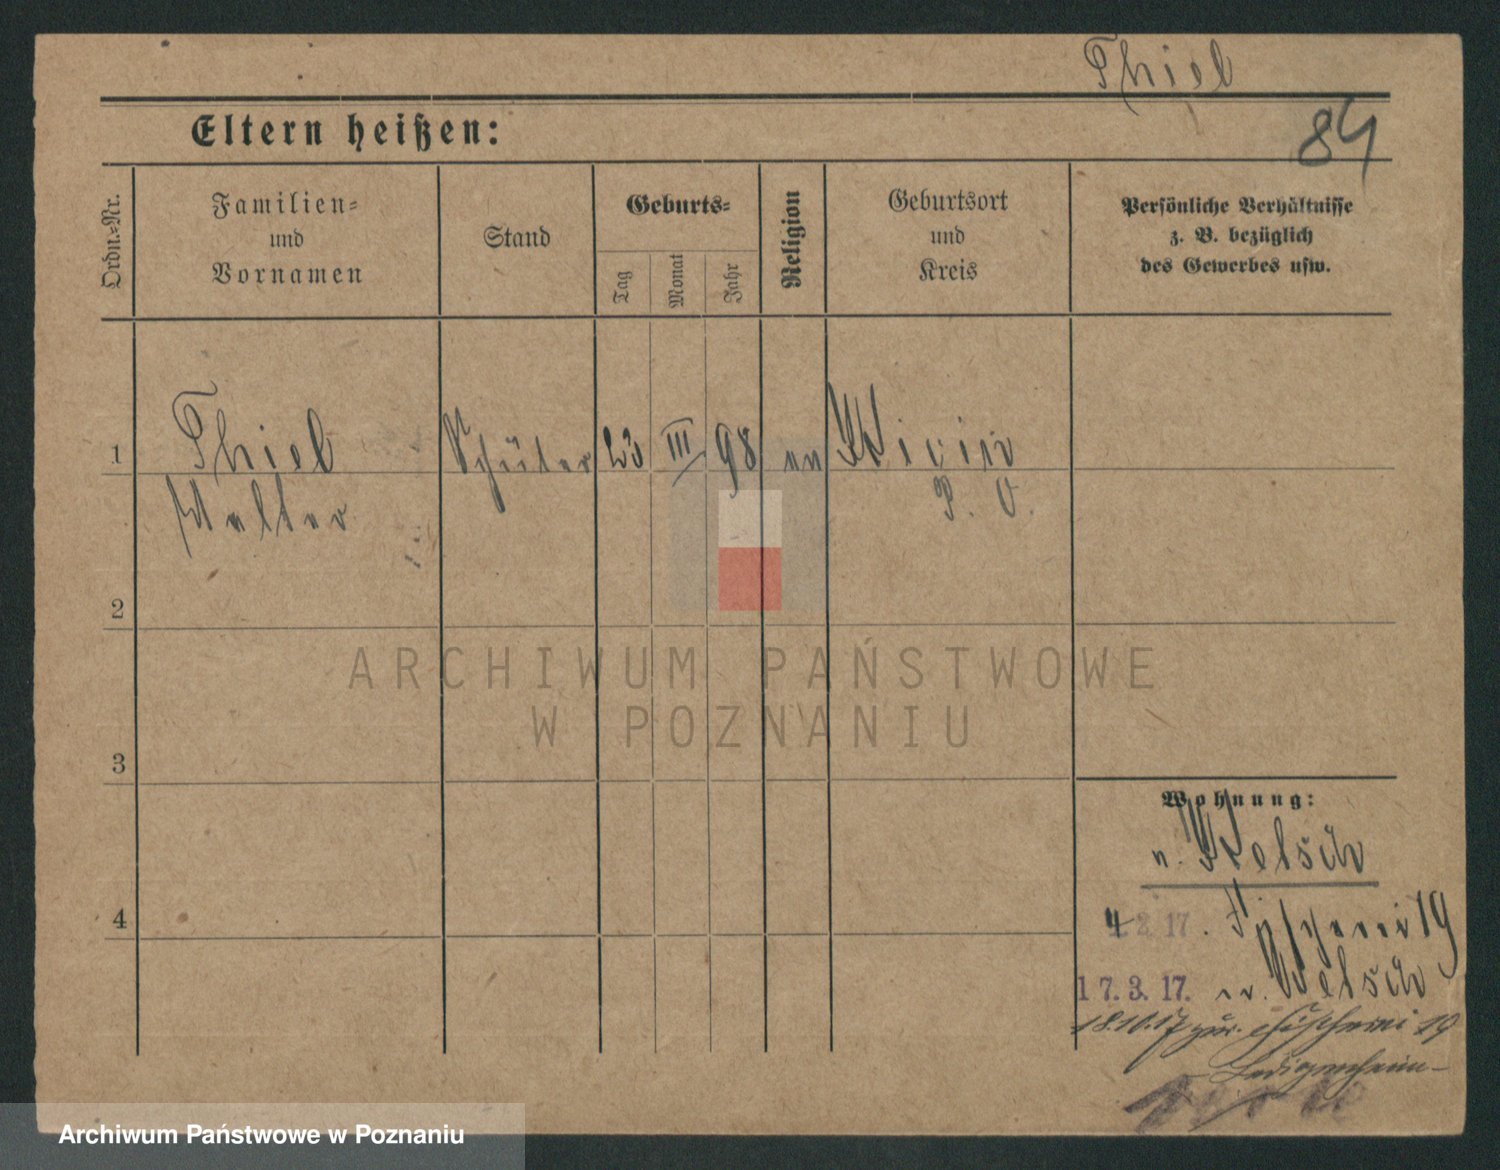 Thiel
84
Eltern heißen:
Ordn.-Nr.
Familien-
und
Vornamen
Stand
Geburts-
Tag
Monat
Jahr
Religion
Geburtsort
und
Kreis
Persönliche Verhältnisse
z. B. bezüglich
des Gewerbes usw.
1
Thiel
Schüler
23
III
98
ev
Walter
P. O.
2
ARCHIWUM PAŃSTWOWE
W POZNANIU
3
Wohnung:
n. Welsch
4
4 2. 17. Fischerei 19
17. 3. 17. n. Welsch
18.10.17 zur. Fischerei 19
Ledigenheim
Archiwum Państwowe w Poznaniu